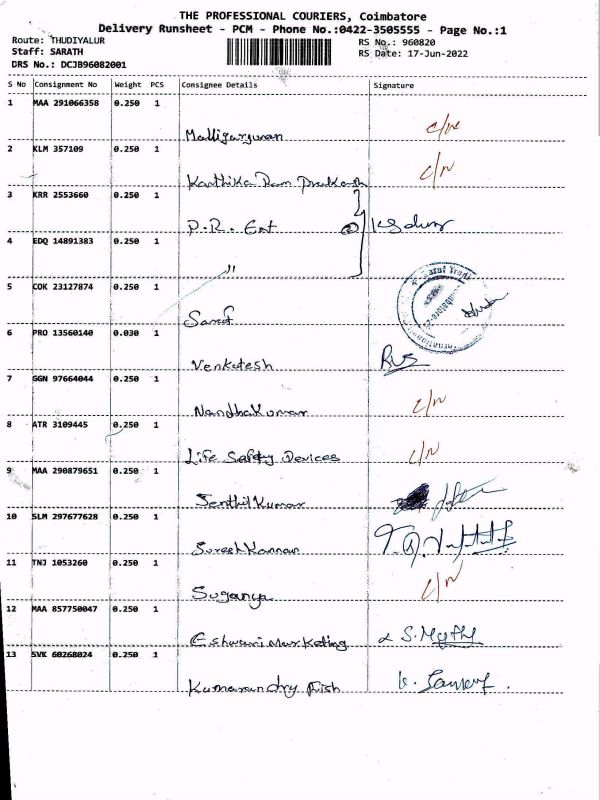 THE PROFESSIONAL COURIERS, Coimbatore
Delivery Runsheet - PCM - Phone No.:0422-3505555 - Page No.:1
Route: THUDIYALUR
RS No.: 960820
Staff: SARATH
RS Date: 17-Jun-2022
DRS No.: DCJB96082001
S No Consignment No Weight PCS Consignee Details Signature
1 MAA 291066358 0.250 1
Malligarjunan c/n
2 KLM 357109 0.250 1
Karthika Ram Prakash c/n
3 KRR 2553660 0.250 1
P.R. Ent
4 EDQ 14891383 0.250 1
"
5 COK 23127874 0.250 1
6 PRO 13560140 0.030 1
Venkatesh
7 GGN 97664044 0.250 1
Nandhakumar c/n
8 ATR 3109445 0.250 1
Life Safety Devices c/n
9 MAA 290879651 0.250 1
Senthil Kumar
10 SLM 297677628 0.250 1
Suresh Kannan
11 TNJ 1053260 0.250 1
Suganya c/n
12 MAA 857750047 0.250 1
Eshwari Marketing
13 SVK 60268024 0.250 1
Kumaran dry Fish